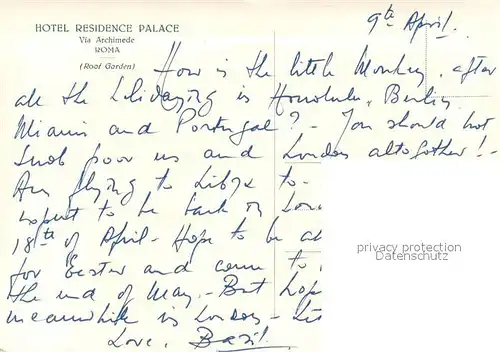 HOTEL RESIDENCE PALACE
Via Archimede
ROMA
(Roof Garden)
9th April.
How is the little Monkey, after
all the holidaying in Honolulu, Berlin,
Miami and Portugal? - You should not
snub poor us and London altogether! -
Am flying to Libya to-
expect to be back in Lon
18th of April - Hope to be
for Easter and come to
the end of May. - But hop
meanwhile in London -
Love, Basil.
privacy protection
Datenschutz